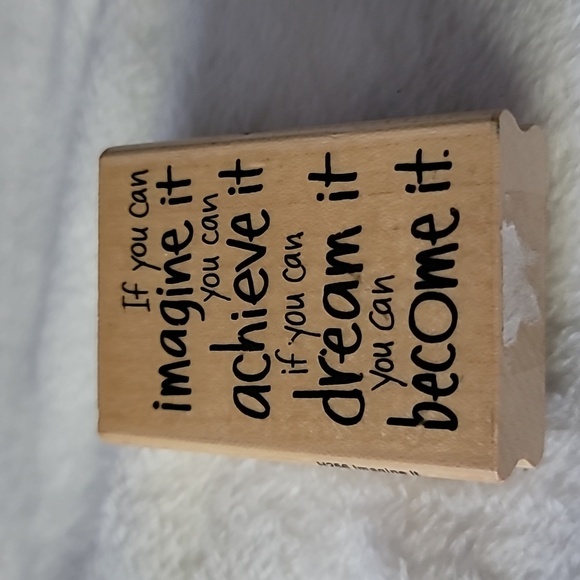 If you can
imagine it
you can
achieve it
if you can
dream it
you can
become it.
Imagine It